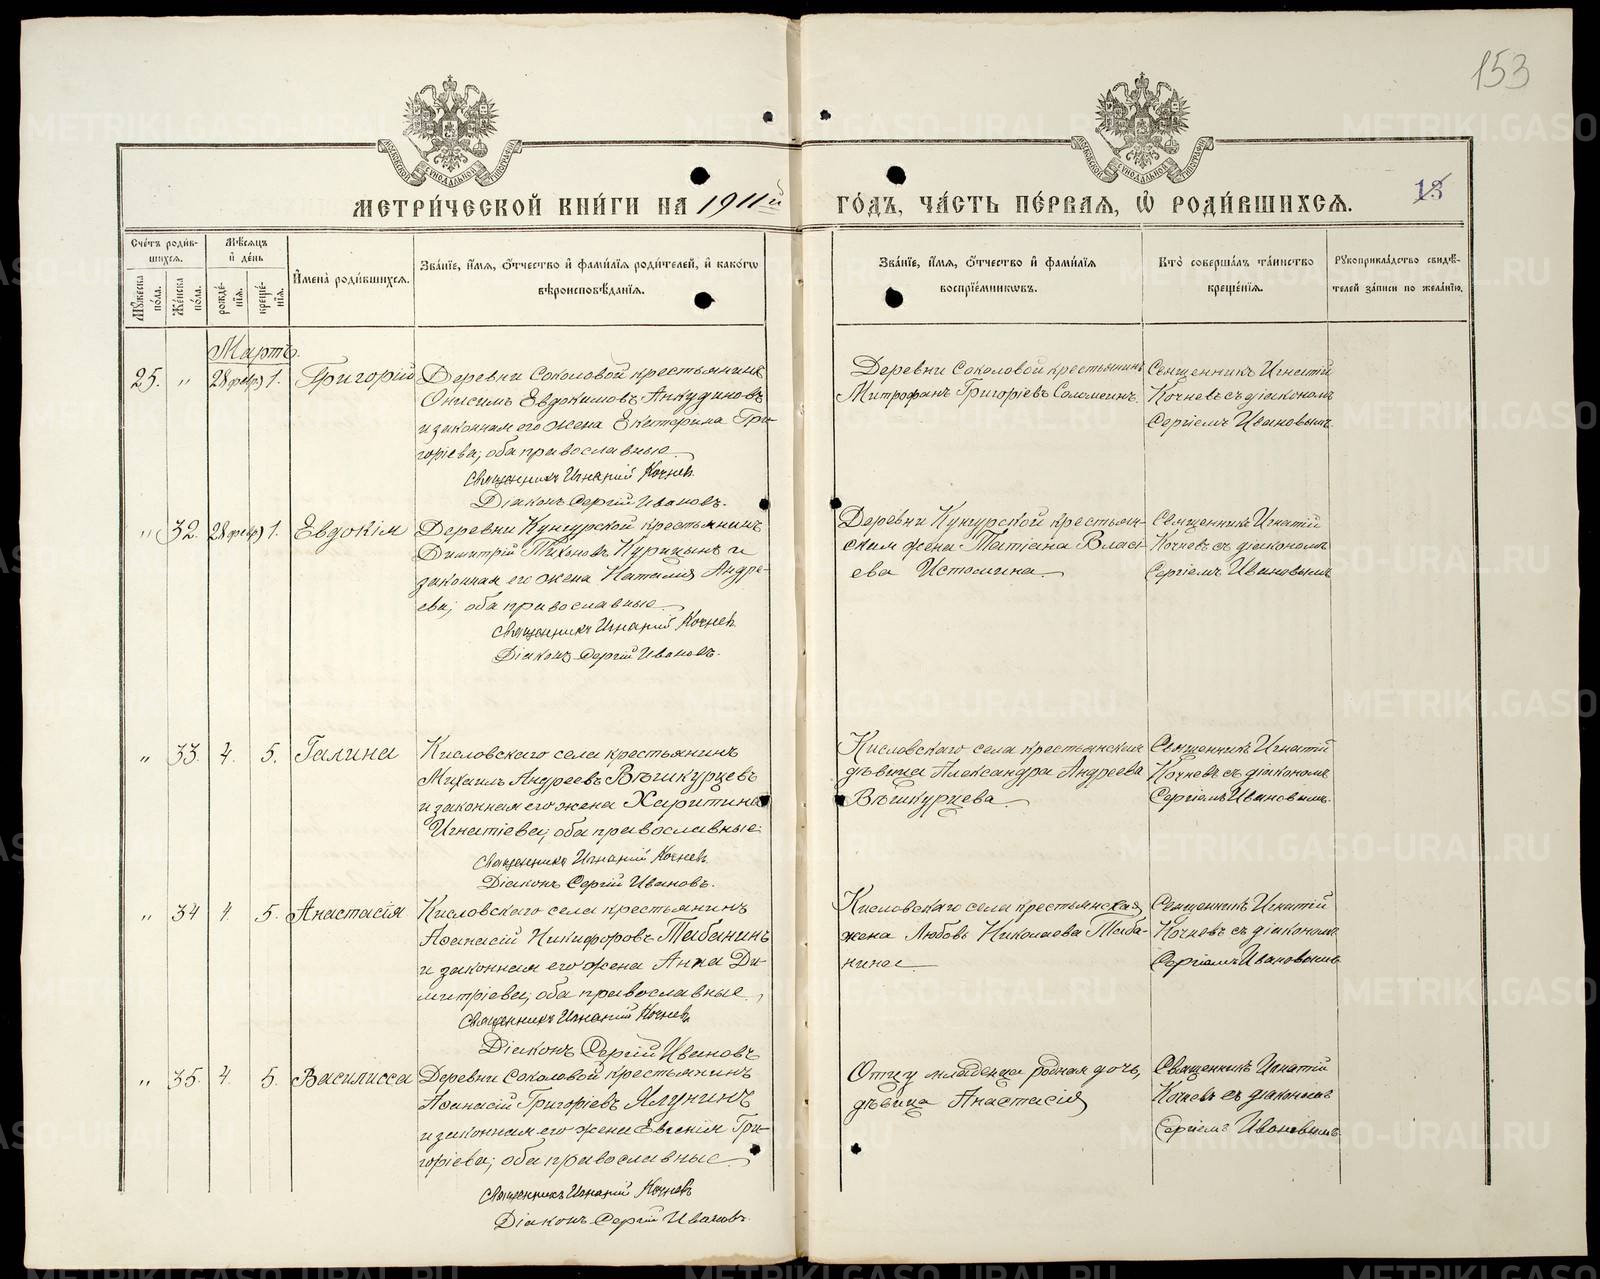 153
МОСКОВСКОЙ СѴНОДАЛЬНОЙ ТИПОГРАФІИ
МОСКОВСКОЙ СѴНОДАЛЬНОЙ ТИПОГРАФІИ
МЕТРИ́ЧЕСКОЙ КНИ́ГИ НА 1911й
ГО́ДЪ, ЧА́СТЬ ПЕ́РВАЯ, Ѿ РОДИ́ВШИХСЯ.
13
Сче́тъ роди́в-
шихся.
Му́жеска по́ла.
Же́нска по́ла.
Мѣ́сяцъ
и҆ де́нь
рожде́-
нїя.
креще́-
нїя.
И҆мена̀ роди́вшихся.
Зва́нїе, и҆́мя, ѻ҆́тчество и҆ фами́лїя роди́телей, и҆ како́гѡ
вѣроисповѣ́данїя.
Зва́нїе, и҆́мя, ѻ҆́тчество и҆ фами́лїя
воспрїе́мниковъ.
Кто̀ соверша́лъ та́инство
креще́нїя.
Рукоприкла́дство свидѣ́-
телей за́писи по жела́нїю.
Мартъ.
25. " 28 февр) 1. Григорій
Деревни Соколовой крестьянинъ
Онисимъ Евдокимовъ Анкудиновъ
и законная его жена Екатерина Гри-
горіева; оба православные
Священникъ Игнатій Кочневъ
Діаконъ Сергій Ивановъ.
Деревни Соколовой крестьянинъ
Митрофанъ Григоріевъ Соломеинъ.
Священникъ Игнатій
Кочневъ съ діакономъ
Сергіемъ Ивановымъ.
" 32. 28 февр) 1. Евдокім
Деревни Кунгурской крестьянинъ
Димитрій Тихоновъ Курицынъ и
законная его жена Наталія Андре-
ева; оба православные
Священникъ Игнатій Кочневъ
Діаконъ Сергій Ивановъ.
Деревни Кунгурской крестьян-
ская жена Татіана Власі-
ева Истомина
Священникъ Игнатій
Кочневъ съ діакономъ
Сергіемъ Ивановымъ
" 33. 4. 5. Галина
Кисловскаго села крестьянинъ
Михаилъ Андреевъ Вѣшкурцевъ
и законная его жена Харитина
Игнатіева; оба православные.
Священникъ Игнатій Кочневъ
Діаконъ Сергій Ивановъ.
Кисловскаго села крестьянская
дѣвица Александра Андреева
Вѣшкурцева
Священникъ Игнатій
Кочневъ съ діакономъ
Сергіемъ Ивановымъ.
" 34 4. 5. Анастасія
Кисловскаго села крестьянинъ
Аѳанасій Никифоровъ Табанинъ
и законная его жена Анна Ди-
митріева; оба православные
Священникъ Игнатій Кочневъ
Діаконъ Сергій Ивановъ
Кисловскаго села крестьянская
жена Любовь Николаева Таба-
нина
Священникъ Игнатій
Кочневъ съ діакономъ
Сергіемъ Ивановымъ
" 35. 4. 5. Василисса
Деревни Соколовой крестьянинъ
Аѳанасій Григоріевъ Ялунинъ
и законная его жена Евгенія Гри-
горіева; оба православные
Священникъ Игнатій Кочневъ
Діаконъ Сергій Ивановъ.
Отцу младенца родная дочь,
дѣвица Анастасія
Священникъ Игнатій
Кочневъ съ діакономъ
Сергіемъ Ивановымъ
METRIKI.GASO-URAL.RU